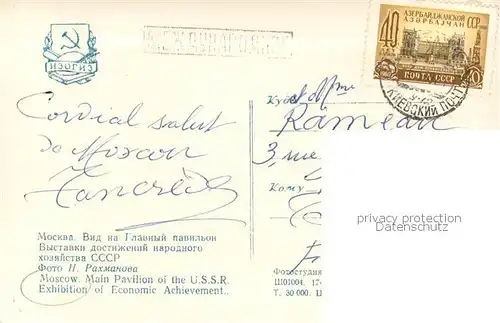 ИЗОГИЗ
МЕЖДУНАРОДНОЕ
40 АЗЕРБАЙДЖАНСКОЙ ССР
АЗӘРБАЈҸАН
ПОЧТА СССР
Куда
et Mme
Rameau
Cordial salut
de Moscou
Tancrède
3, rue
Кому
privacy protection
copyright watermark
Москва. Вид на Главный павильон
Выставки достижений народного
хозяйства СССР
Фото Н. Рахманова
Moscow. Main Pavilion of the U.S.S.R.
Exhibition of Economic Achievement.
Фотостудия
Ш01004. 17-
Т. 30 000.